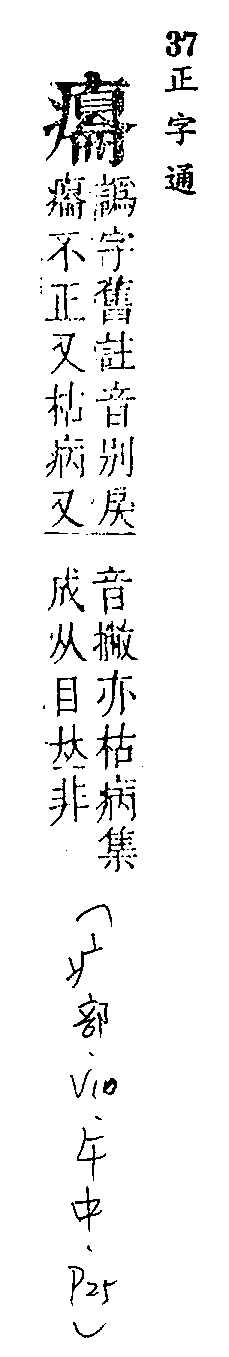 37
正字通
譌字舊註音別戾
不正又枯病又
音撇亦枯病集
成从目𠀤非
(疒部、V10、午中、P25)